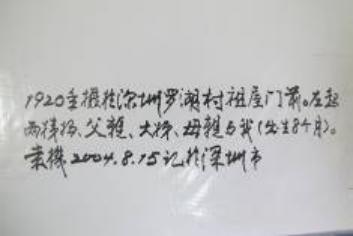 1920年摄于深圳罗湖村祖屋门前。左起
两位、父親、大、母親与我(出生8个月)。
2004.8.15记于深圳市